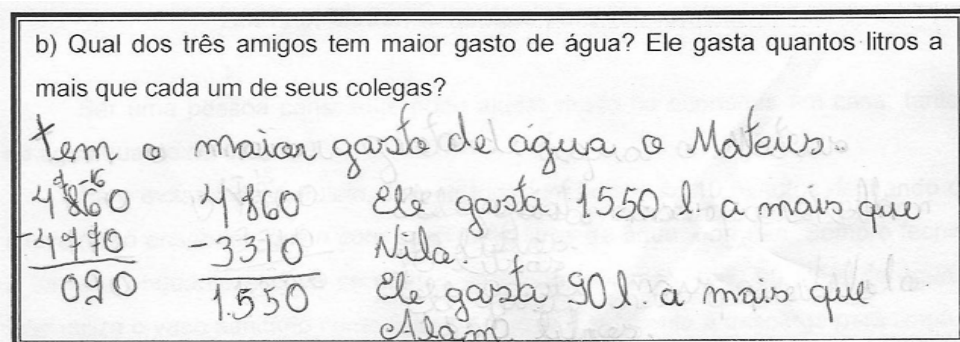 b) Qual dos três amigos tem maior gasto de água? Ele gasta quantos litros a
mais que cada um de seus colegas?
tem o maior gasto de água o Mateus.
7 16
4860 4860 Ele gasta 1550 l. a mais que
-4770 -3310 Nila.
090 1.550 Ele gasta 90 l a mais que
Alam.